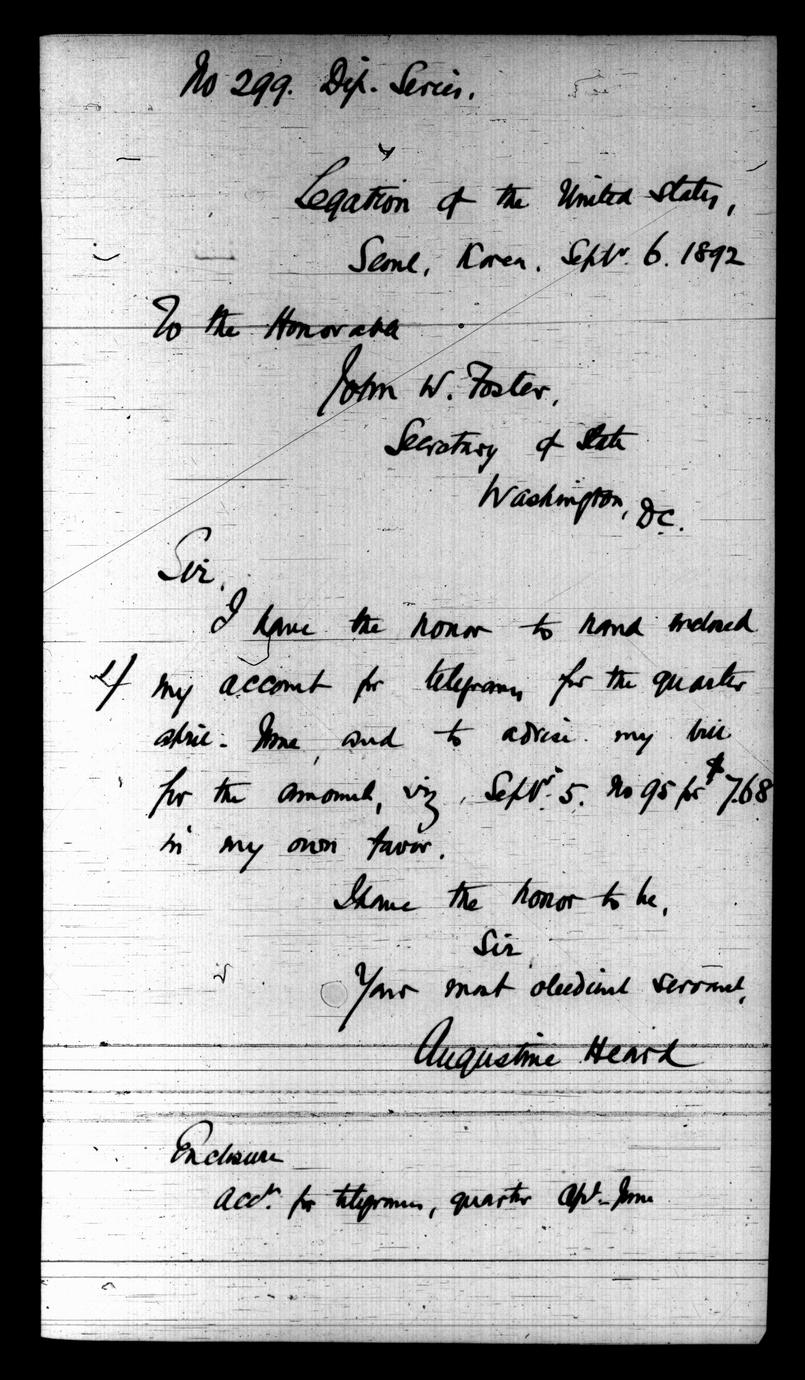 No 299. Dip. Series.
Legation of the United States,
Seoul, Korea. Septr. 6. 1892
To the Honorable
John W. Foster,
Secretary of State
Washington, D.C.
Sir,
I have the honor to hand enclosed
my account for telegrams for the quarter
April - June, and to advise my bill
for the amount, viz, Septr. 5. No 95 for $7.68
in my own favor.
I have the honor to be,
Sir,
Your most obedient servant,
Augustine Heard
Enclosure
Acct. for telegrams, quarter Apl - June